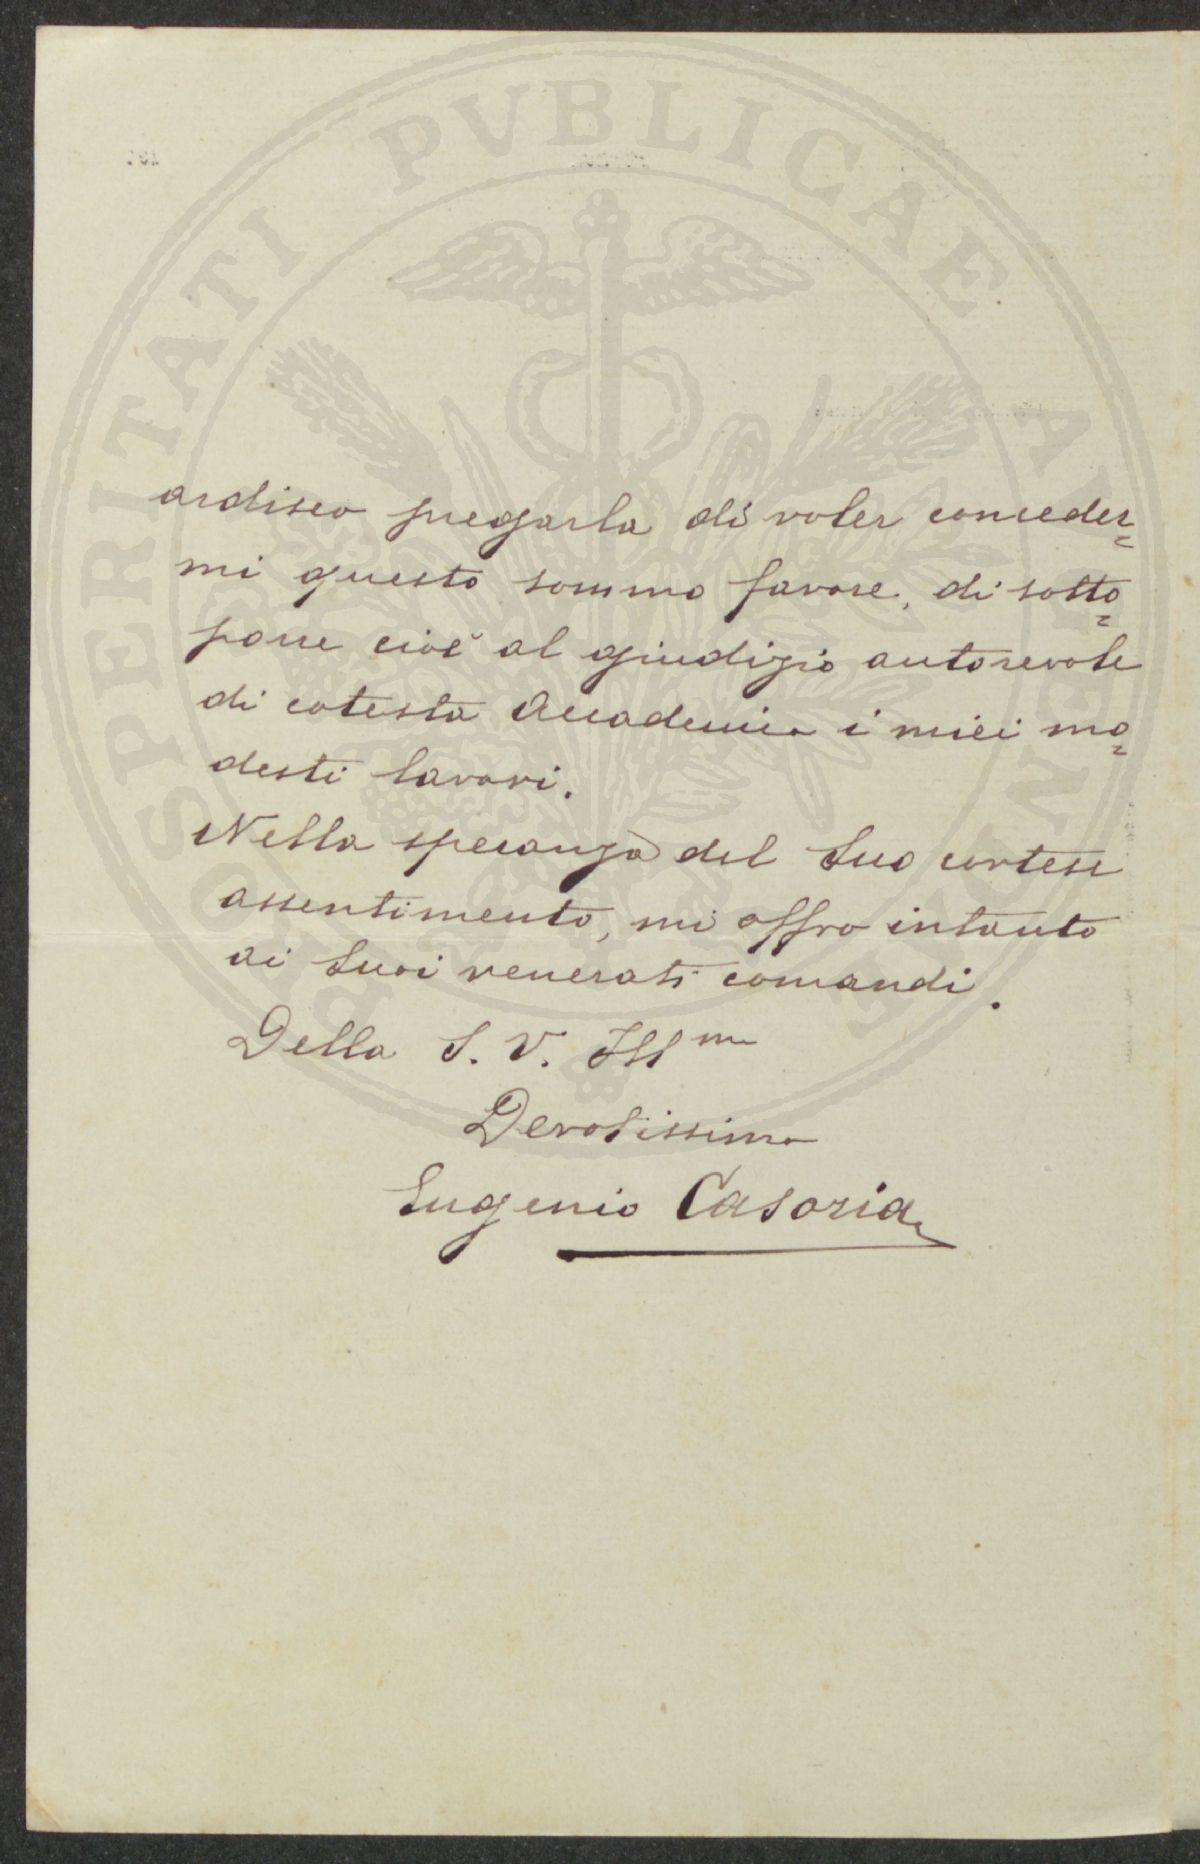 PROSPERITATI PUBLICAE AUGENDAE
ardisco pregarla di voler conceder=
mi questo sommo favore, di sotto=
porre cioè al giudizio autorevole
di cotesta Accademia i miei mo=
desti lavori.
Nella speranza del Suo cortese
assentimento, mi offro intanto
ai Suoi venerati comandi.
Della S. V. Ill ma
Devotissimo
Eugenio Casoria